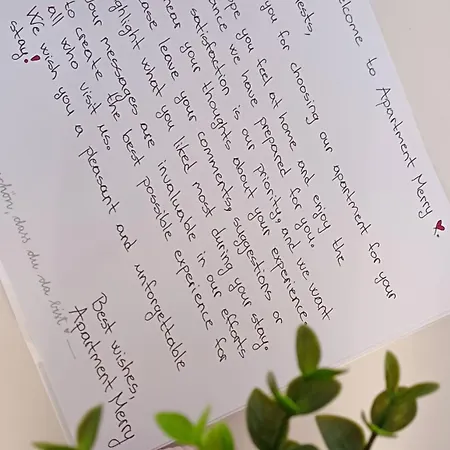 elcome to Apartment Merry
ests,
you for choosing our apartment for your
ope you feel at home and enjoy the
ence we have prepared for you.
satisfaction is our priority, and we want
hear your thoughts about your experience.
ease leave your comments, suggestions or
ghlight what you liked most during your stay.
our messages are invaluable in our efforts
to create the best possible experience for
all who visit us.
We wish you a pleasant and unforgettable
stay!
Best wishes,
Apartment Merry
schön, dass du da bist